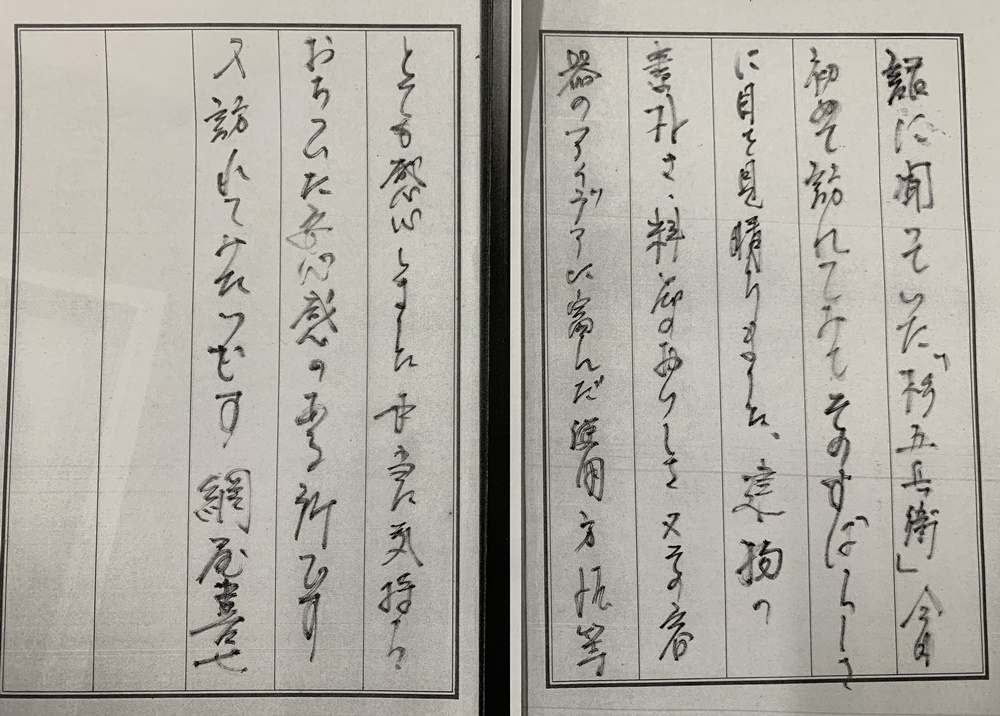 話に聞いていた「杉五兵衛」今日
初めて訪れてみてそのすばらしさ
に目を見晴りました、建物の
素朴さ、料理の両らしさ 又その容
器のアイデアに富んだ使用方法等
とても感心しました 本当に気持ち
おちついた安心感のある所です
又訪れてみたいです 網屋喜七